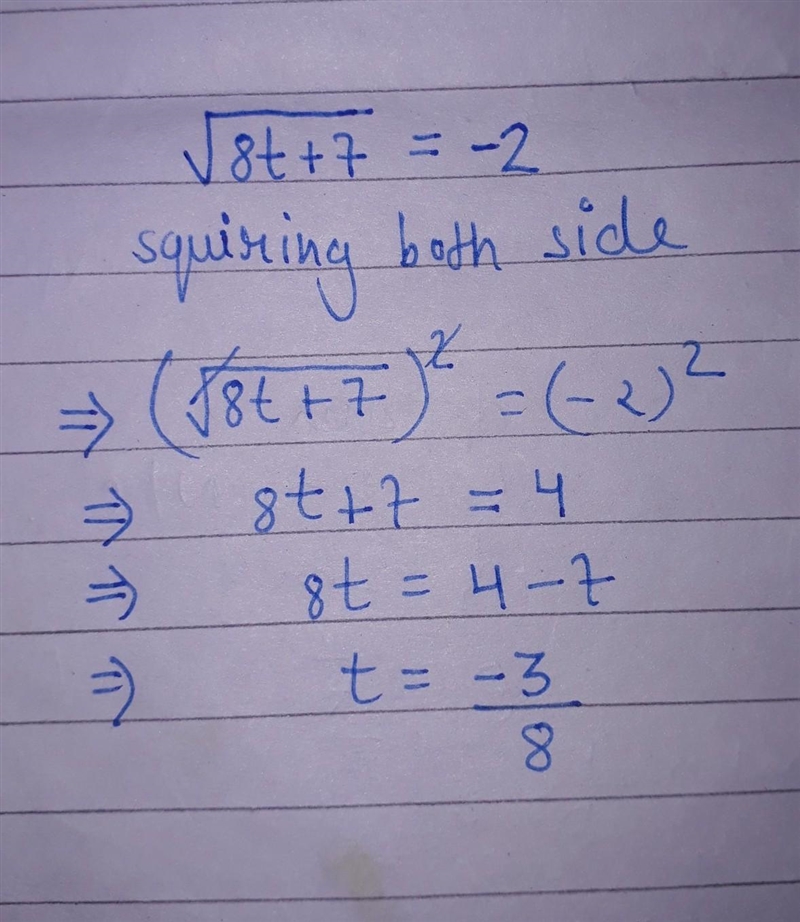 √(8t+7) = -2
squiring both side
⇒ (√(8t+7))² = (-2)²
⇒ 8t+7 = 4
⇒ 8t = 4-7
⇒ t = -3/8